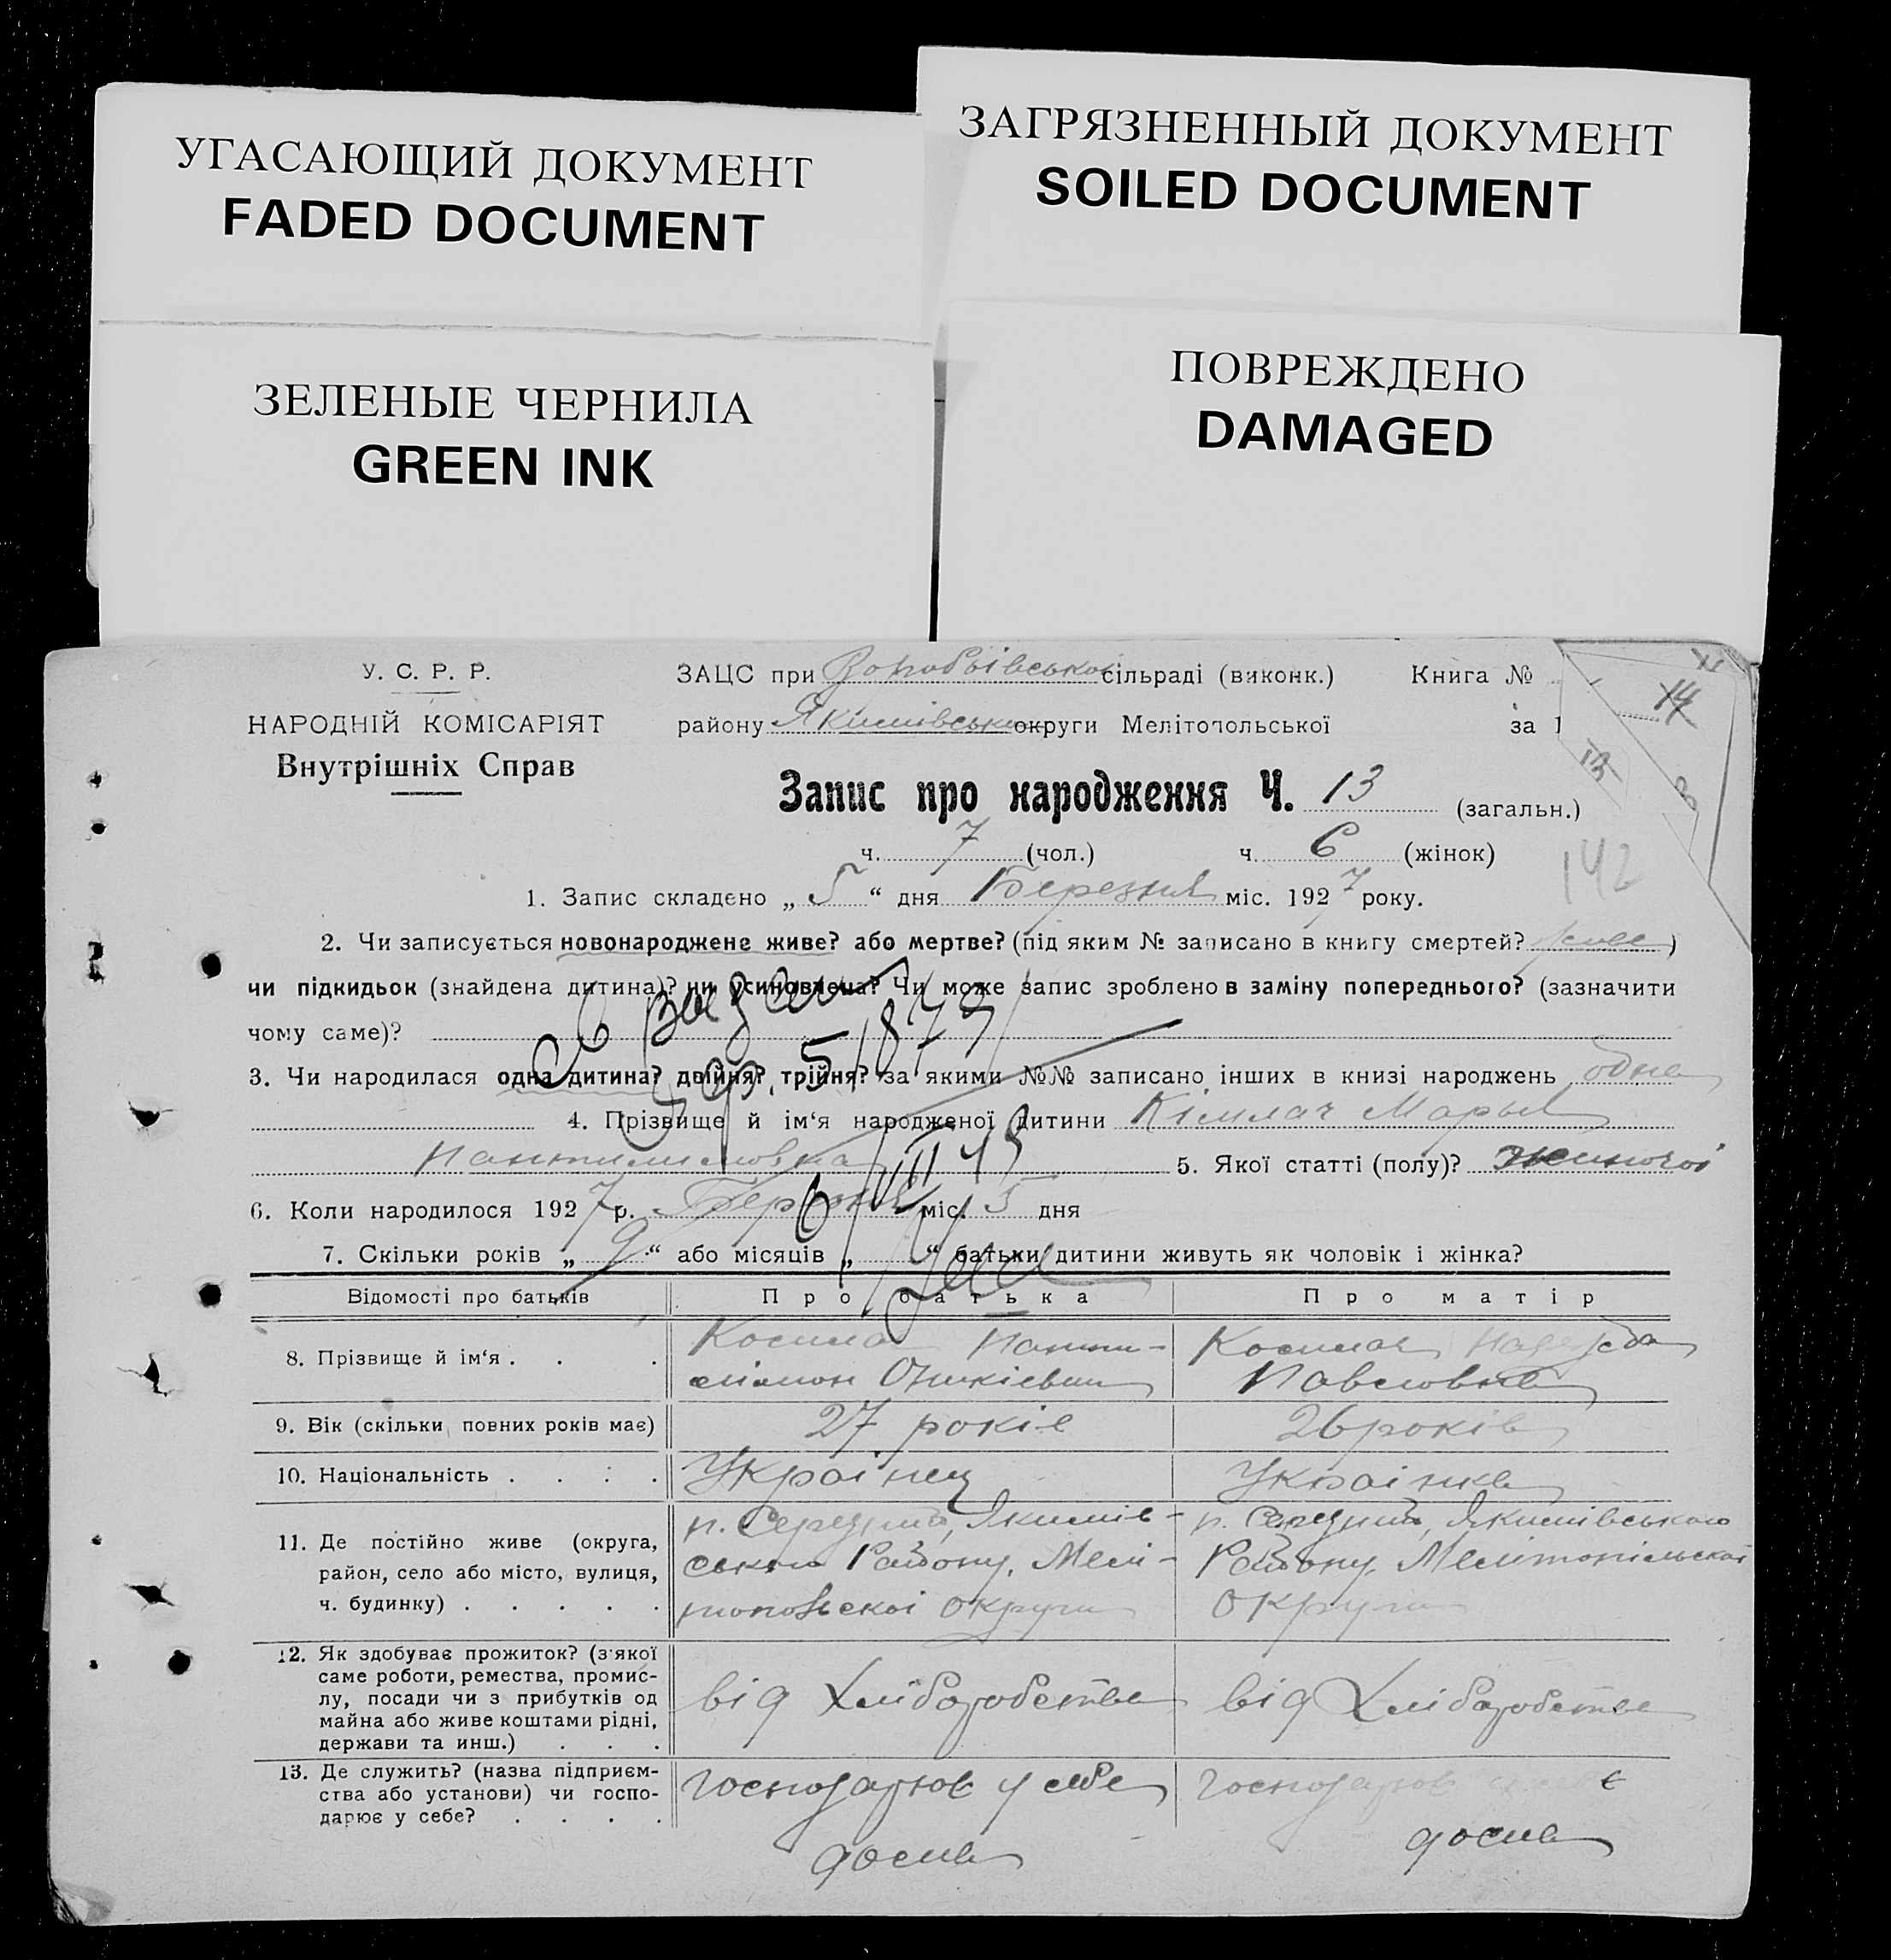 УГАСАЮЩИЙ ДОКУМЕНТ
FADED DOCUMENT
ЗАГРЯЗНЕННЫЙ ДОКУМЕНТ
SOILED DOCUMENT
ЗЕЛЕНЫЕ ЧЕРНИЛА
GREEN INK
ПОВРЕЖДЕНО
DAMAGED
У. С. Р. Р.
НАРОДНІЙ КОМІСАРІЯТ
Внутрішніх Справ
ЗАЦС при сільраді (виконк.) Книга №
району Якимівсько округи Мелітопольської за 1
14
13
Запис про народження Ч. 13 (загальн.)
ч. 7 (чол.) ч. 6 (жінок)
142
1. Запис складено „ 5 “ дня Березня міс. 1927 року.
2. Чи записується новонароджене живе? або мертве? (під яким № записано в книгу смертей? живе )
чи підкидьок (знайдена дитина)? чи усиновлена? Чи може запис зроблено в заміну попереднього? (зазначити
чому саме)?
3. Чи народилася одна дитина? двійня? трійня? за якими №№ записано інших в книзі народжень одна
4. Прізвище й ім‘я народженої дитини Марья
5. Якої статті (полу)? жиночої
6. Коли народилося 1927 р. Березня міс. 5 дня
7. Скільки років „ 9 “ або місяців „ “ батьки дитини живуть як чоловік і жінка?
Відомості про батьків Про батька Про матір
8. Прізвище й ім‘я . . . Панти- Надежда
Павловна
9. Вік (скільки повних років має) 27 років 26 років
10. Національність . . . . Украінец Украінка
11. Де постійно живе (округа, Якимів- Якимівського
район, село або місто, вулиця, ського Району, Мелі- Району, Мелітопільскоі
ч. будинку) . . . . . округи округи
12. Як здобуває прожиток? (з якої
саме роботи, ремества, промис-
лу, посади чи з прибутків од від Хліборобства від Хліборобства
майна або живе коштами рідні,
держави та инш.) . . .
13. Де служить? (назва підприєм- господарює у себе
ства або установи) чи госпо-
дарює у себе? . . . .
дома дома